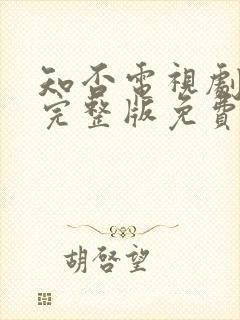 知否電視劇
完整版免費
胡啓望